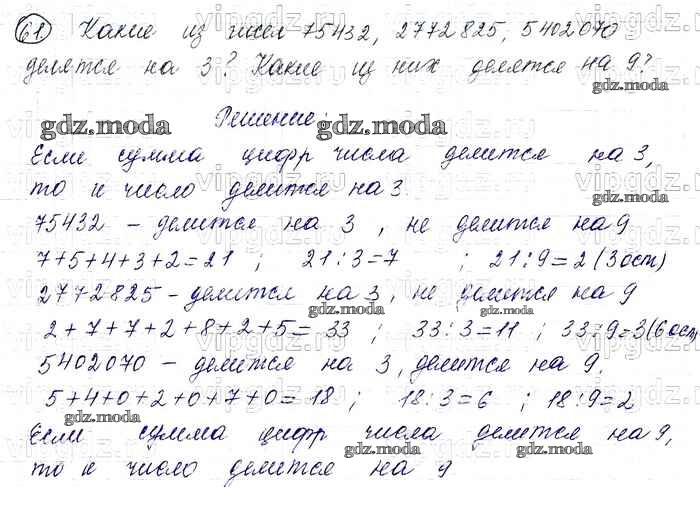 61 Какие из чисел 75432, 2772825, 5402070
делятся на 3? Какие из них делятся на 9?
gdz.moda
Решение:
gdz.moda gdz.moda
Если сумма цифр числа делится на 3,
то и число делится на 3.
75432 – делится на 3, не делится на 9
7+5+4+3+2=21 ; 21:3=7 ; 21:9=2 (3 ост)
gdz.moda
2772825 – делится на 3, не делится на 9
gdz.moda gdz.moda
2+7+7+2+8+2+5=33 ; 33:3=11 ; 33:9=3(6 ост)
5402070 – делится на 3, делится на 9.
5+4+0+2+0+7+0=18 ; 18:3=6 ; 18:9=2
gdz.moda
Если сумма цифр числа делится на 9,
gdz.moda gdz.moda
то и число делится на 9